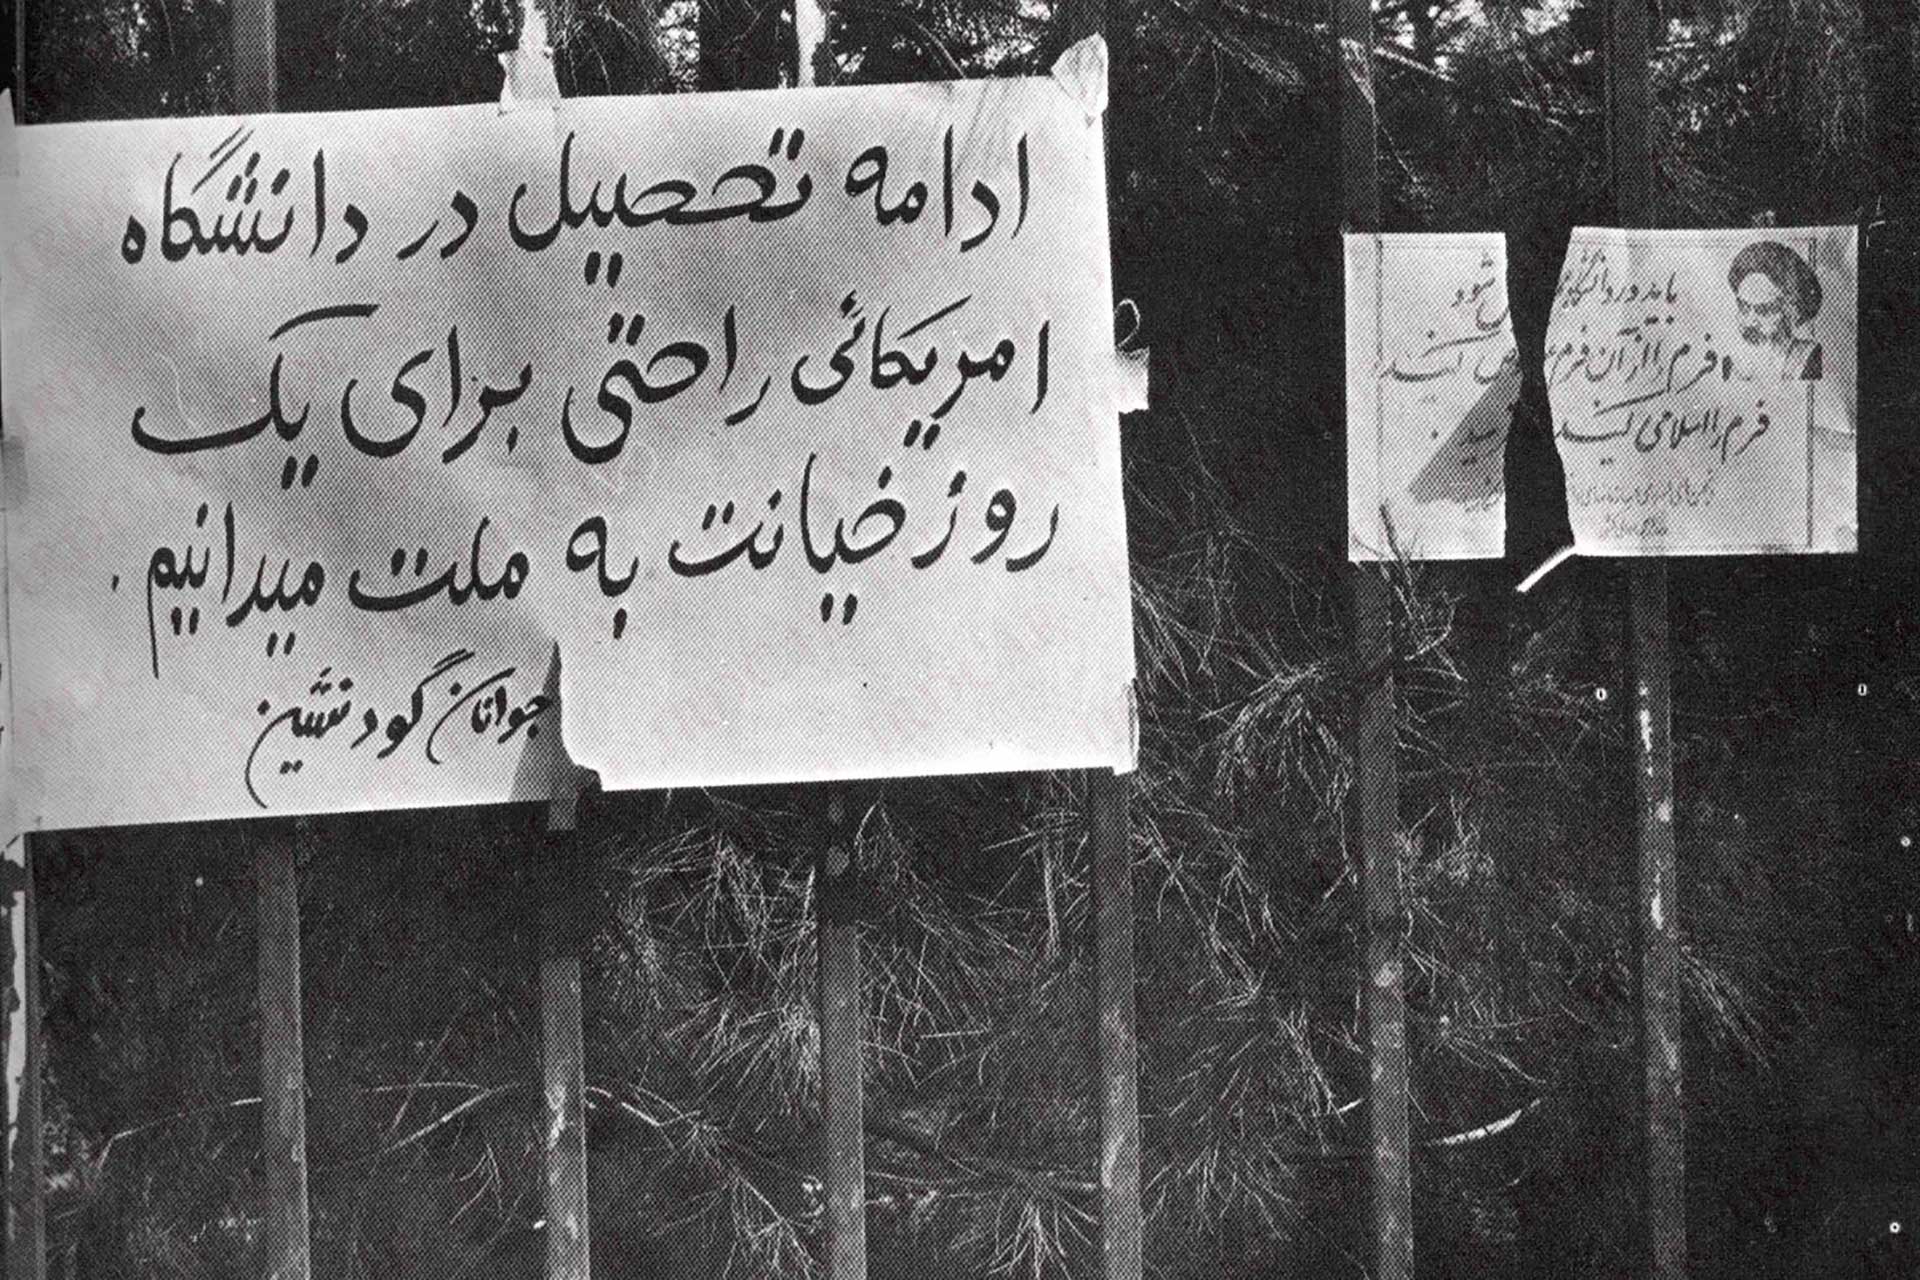 ادامه تحصیل در دانشگاه
امریکائی را حتی برای یک
روز خیانت به ملت میدانیم.
جوانان گود نشین
باید در دانشگا شود
فرم را از آن فرم کنید
فرم را اسلامی کنید